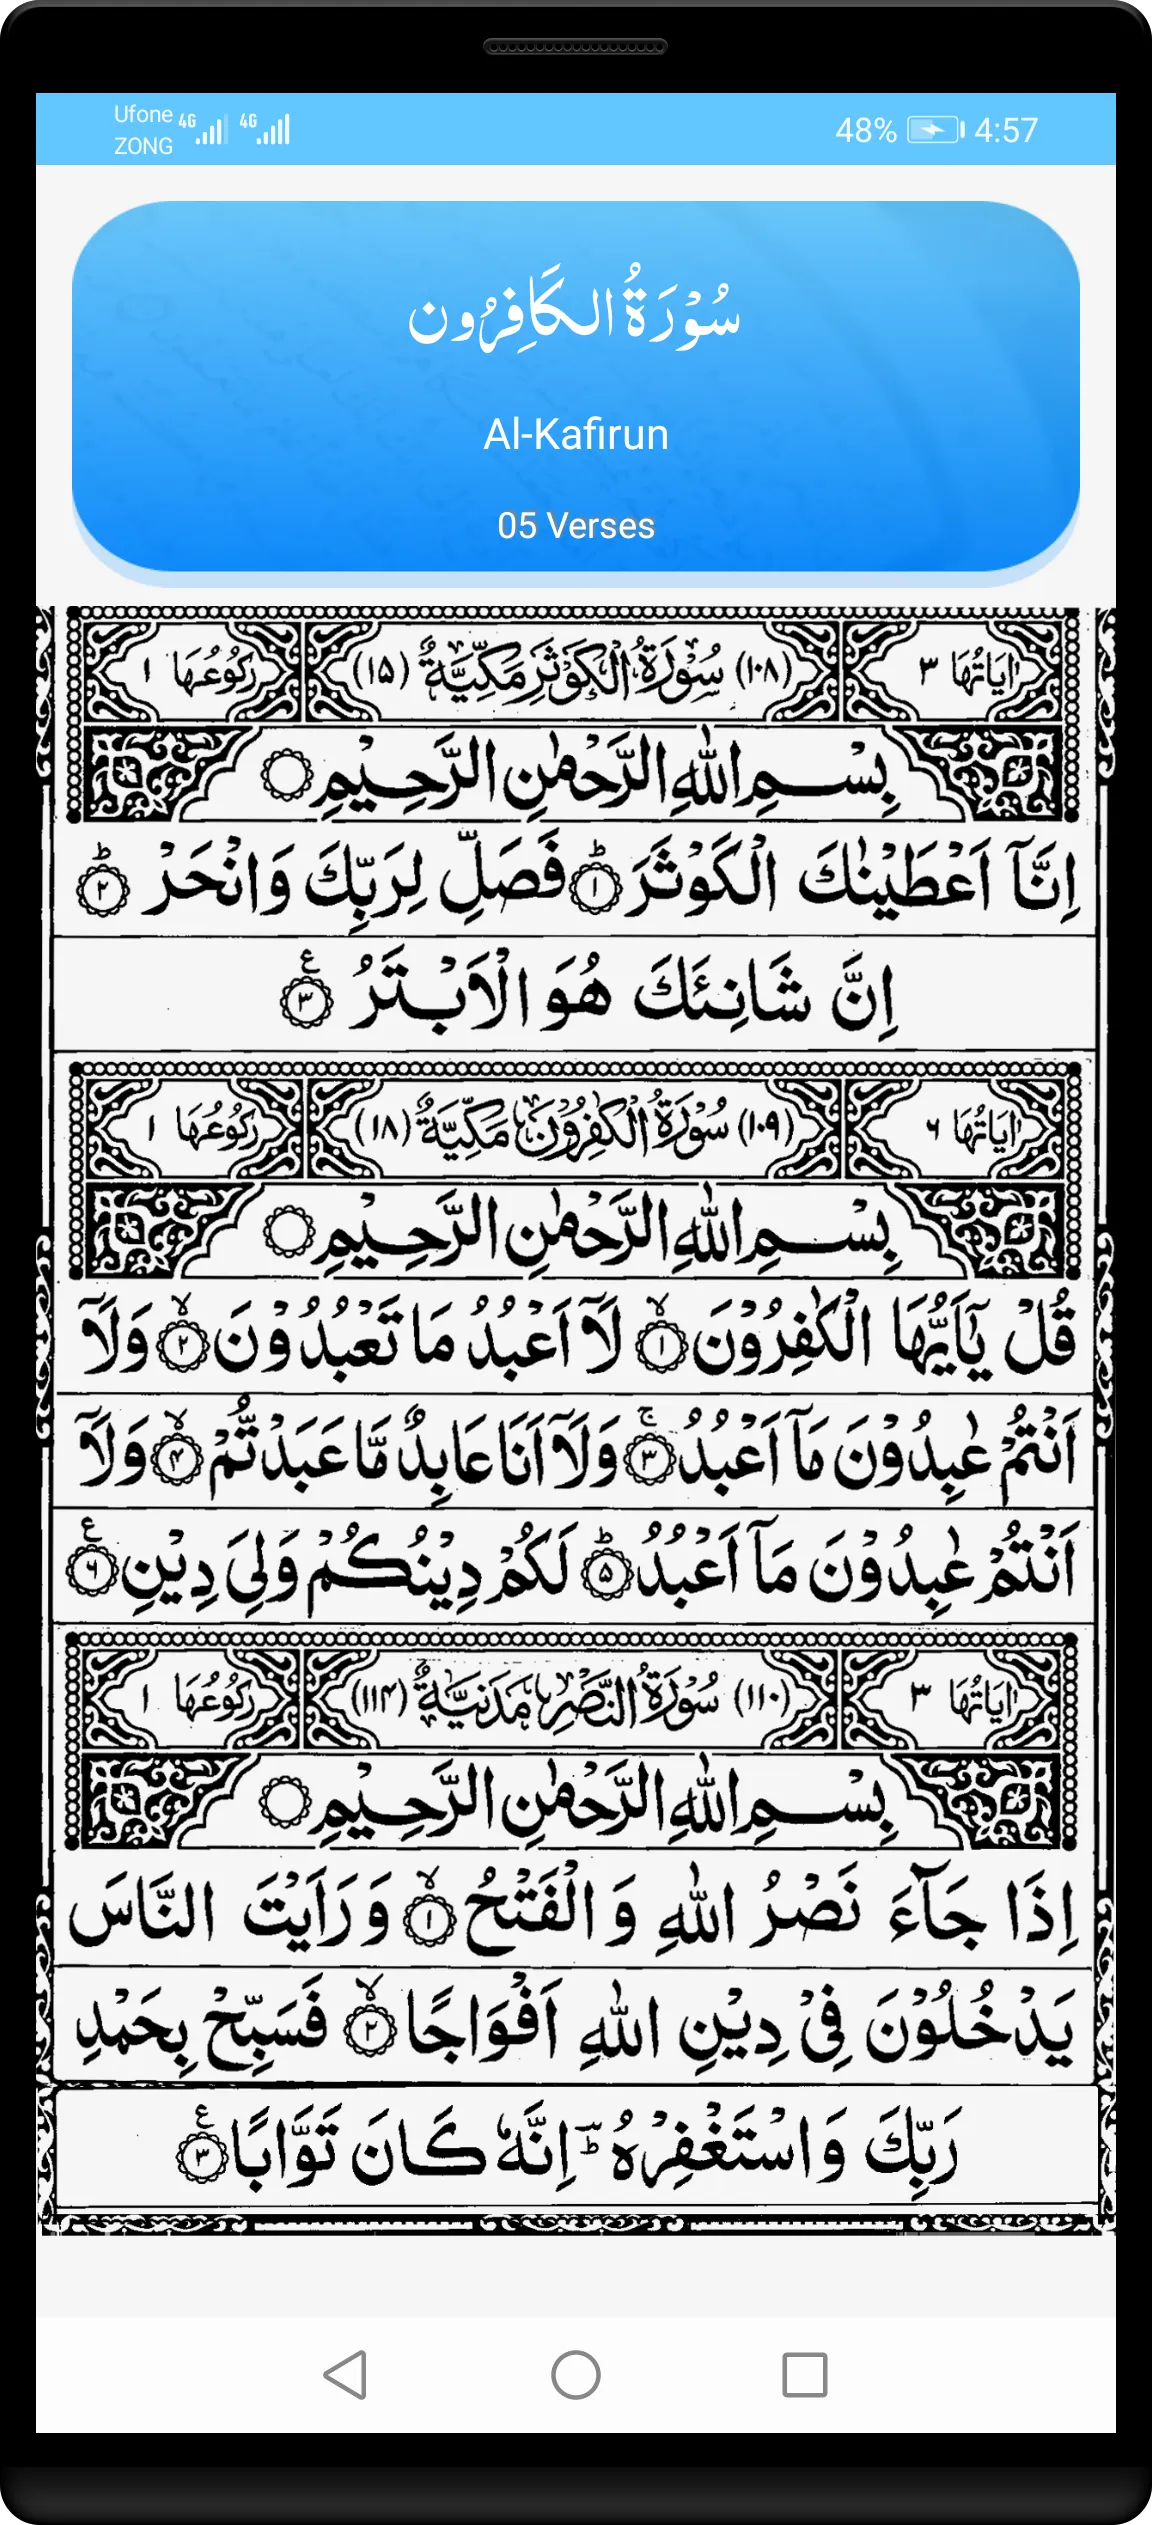 Ufone 4G 4G
ZONG
48% 4:57
سُوْرَةُ الكَافِرُون
Al-Kafirun
05 Verses
اٰيَاتُهَا ٣ (١٠٨) سُوْرَةُ الْكَوْثَرِ مَكِّيَّةٌ (١٥) رُكُوْعُهَا ١
بِسْمِ اللّٰهِ الرَّحْمٰنِ الرَّحِيْمِ
اِنَّآ اَعْطَيْنٰكَ الْكَوْثَرَ ؕ١ فَصَلِّ لِرَبِّكَ وَانْحَرْ ؕ٢
اِنَّ شَانِئَكَ هُوَ الْاَبْتَرُ ٣ ع
اٰيَاتُهَا ٦ (١٠٩) سُوْرَةُ الْكٰفِرُوْنَ مَكِّيَّةٌ (١٨) رُكُوْعُهَا ١
بِسْمِ اللّٰهِ الرَّحْمٰنِ الرَّحِيْمِ
قُلْ يٰٓاَيُّهَا الْكٰفِرُوْنَ ۙ١ لَآ اَعْبُدُ مَا تَعْبُدُوْنَ ۙ٢ وَلَآ
اَنْتُمْ عٰبِدُوْنَ مَآ اَعْبُدُ ۚ٣ وَلَآ اَنَا عَابِدٌ مَّا عَبَدْتُّمْ ۙ۴ وَلَآ
اَنْتُمْ عٰبِدُوْنَ مَآ اَعْبُدُ ؕ۵ لَكُمْ دِيْنُكُمْ وَلِيَ دِيْنِ ٦ ع
اٰيَاتُهَا ٣ (١١٠) سُوْرَةُ النَّصْرِ مَدَنِيَّةٌ (١١۴) رُكُوْعُهَا ١
بِسْمِ اللّٰهِ الرَّحْمٰنِ الرَّحِيْمِ
اِذَا جَآءَ نَصْرُ اللّٰهِ وَ الْفَتْحُ ۙ١ وَ رَاَيْتَ النَّاسَ
يَدْخُلُوْنَ فِيْ دِيْنِ اللّٰهِ اَفْوَاجًا ۙ٢ فَسَبِّحْ بِحَمْدِ
رَبِّكَ وَاسْتَغْفِرْهُ ؕ اِنَّهٗ كَانَ تَوَّابًا ٣ ع